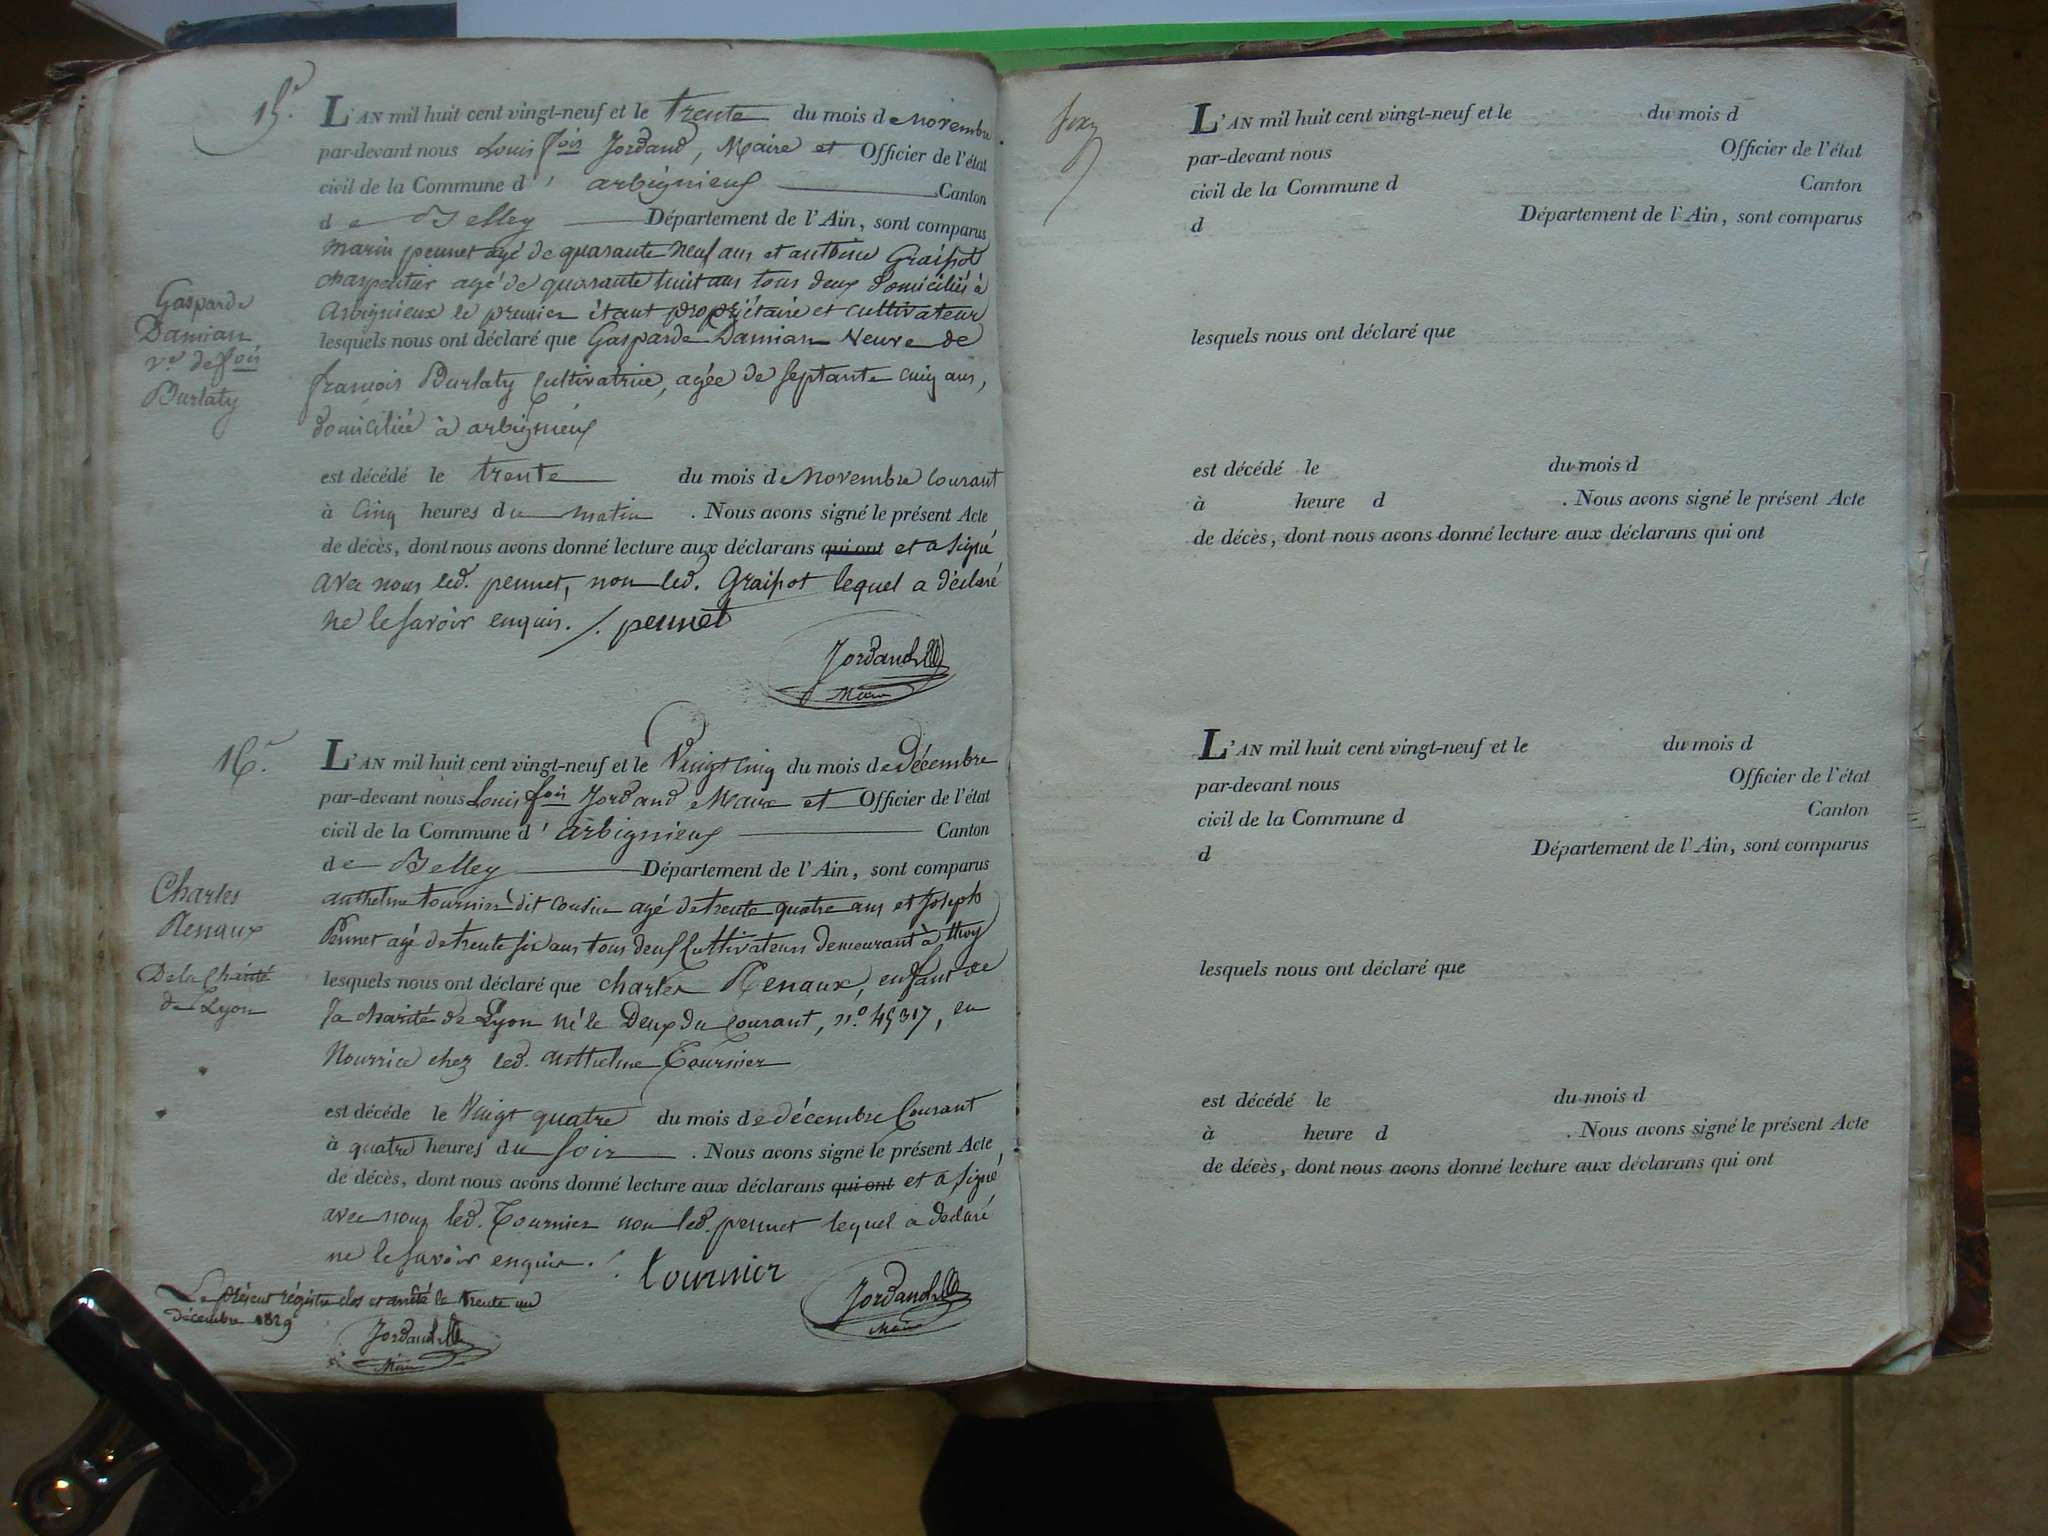 15.e
L'AN mil huit cent vingt-neuf et le trente du mois de Novembre
par-devant nous Louis fois Jordand, Maire et Officier de l'état
civil de la Commune d'arbignieux Canton
de Belley Département de l'Ain, sont comparus
marin pennet agé de quarante neuf ans et antoine Graisot
charpentier agé de quarante huit ans tous deux domiciliés à
Arbignieux le premier étant propriétaire et cultivateur
lesquels nous ont déclaré que Gasparde Damian Veuve de
françois Burlaty Cultivatrice, agée de septante cinq ans,
domiciliée à arbignieux
Gasparde
Damian
ve de fois
Burlaty
est décédé le trente du mois de Novembre Courant
à Cinq heures du matin . Nous avons signé le présent Acte
de décès, dont nous avons donné lecture aux déclarans qui ont et a signé
avec nous led. pennet, non led. Graisot lequel a déclaré
ne le savoir enquis. /. pennet
Jordand
Maire
16.e
L'AN mil huit cent vingt-neuf et le Vingt cinq du mois de décembre
par-devant nous Louis fois Jordand Maire et Officier de l'état
civil de la Commune d'arbignieux Canton
de Belley Département de l'Ain, sont comparus
anthelme tournier dit cousin agé de trente quatre ans et Joseph
Pennet agé de trente six ans tous deux Cultivateurs demeurant à thoy
lesquels nous ont déclaré que charles Renaux, enfant de
la charité de Lyon né le Deux du Courant, n.o 45317, en
Nourrice chez led. anthelme Tournier
Charles
Renaux
De la Charité
de Lyon
est décédé le Vingt quatre du mois de décembre Courant
à quatre heures du soir . Nous avons signé le présent Acte
de décès, dont nous avons donné lecture aux déclarans qui ont et a signé
avec nous led. Tournier non led. pennet lequel a declaré
ne le savoir enquis. /. tournier
Jordand
Maire
Le présent régistre clos et arrêté le trente un
décembre 1829
Jordand
Maire
L'AN mil huit cent vingt-neuf et le du mois d
par-devant nous Officier de l'état
civil de la Commune d Canton
d Département de l'Ain, sont comparus
lesquels nous ont déclaré que
est décédé le du mois d
à heure d . Nous avons signé le présent Acte
de décès, dont nous avons donné lecture aux déclarans qui ont
L'AN mil huit cent vingt-neuf et le du mois d
par-devant nous Officier de l'état
civil de la Commune d Canton
d Département de l'Ain, sont comparus
lesquels nous ont déclaré que
est décédé le du mois d
à heure d . Nous avons signé le présent Acte
de décès, dont nous avons donné lecture aux déclarans qui ont